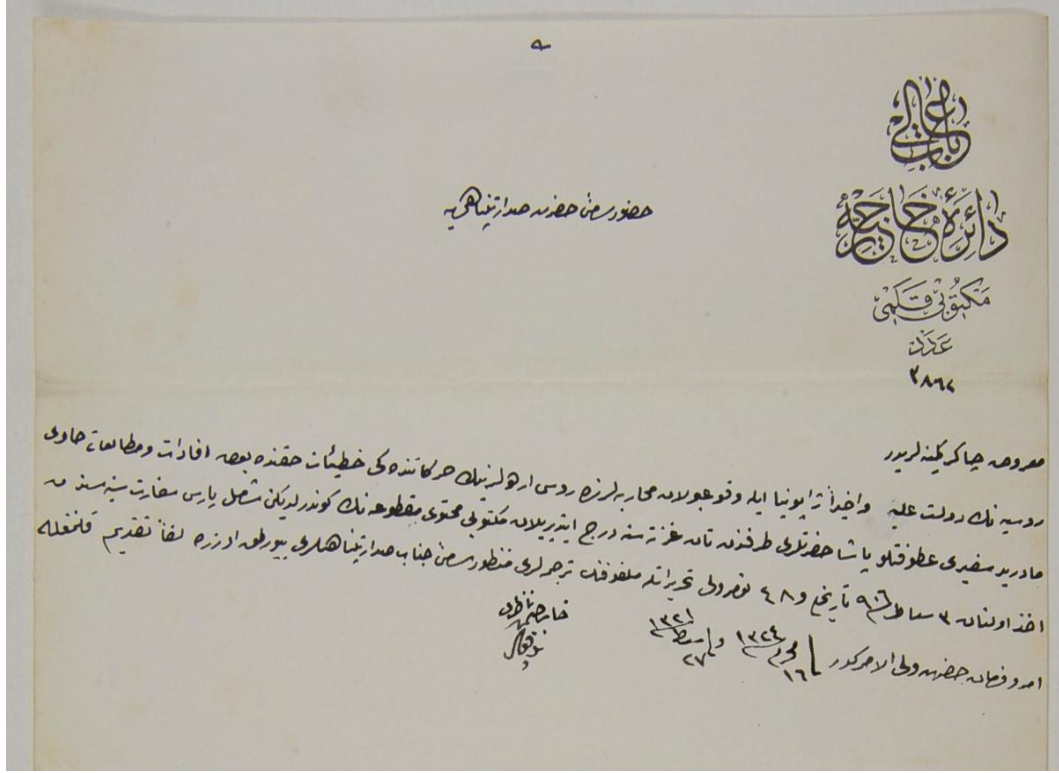 باب عالی
دائرۀ خارجیه
مکتوبی قلمی
عدد
٣٨٦٢
حضور سامئ حضرت صدارتپناهی یه
معروض چاکر کمینه لریدر
روسیه نك دولت علیه و اخیراً ژاپونیا ایله وقوعبولان محاربه لرنده روس اردولرینك حرکاتنده کی خطیئات حقنده بعض افادات و مطالعاتی حاوی
مادرید سفیری عطوفتلو پاشا حضرتلری طرفندن تان غزته سنه درج ایتدیریلان مکتوبی محتوی مقطوعه نك کوندرلدیکنی مشعر پارس سفارت سنیه سندن
اخذ اولنان ٣ مارت ٩٠٦ تاریخلی و ٤٨ نومرولی تحریراتله ملفوفنك ترجمه لری منظور سامئ جناب صدارتپناهیلری بیورلمق اوزره لفاً تقدیم قلنمغله
امر و فرمان حضرت ولی الامرکدر فی ١٦ محرم ١٣٢٤ و فی ٢٧ شباط ١٣٢١
خارجیه ناظری
توفیق